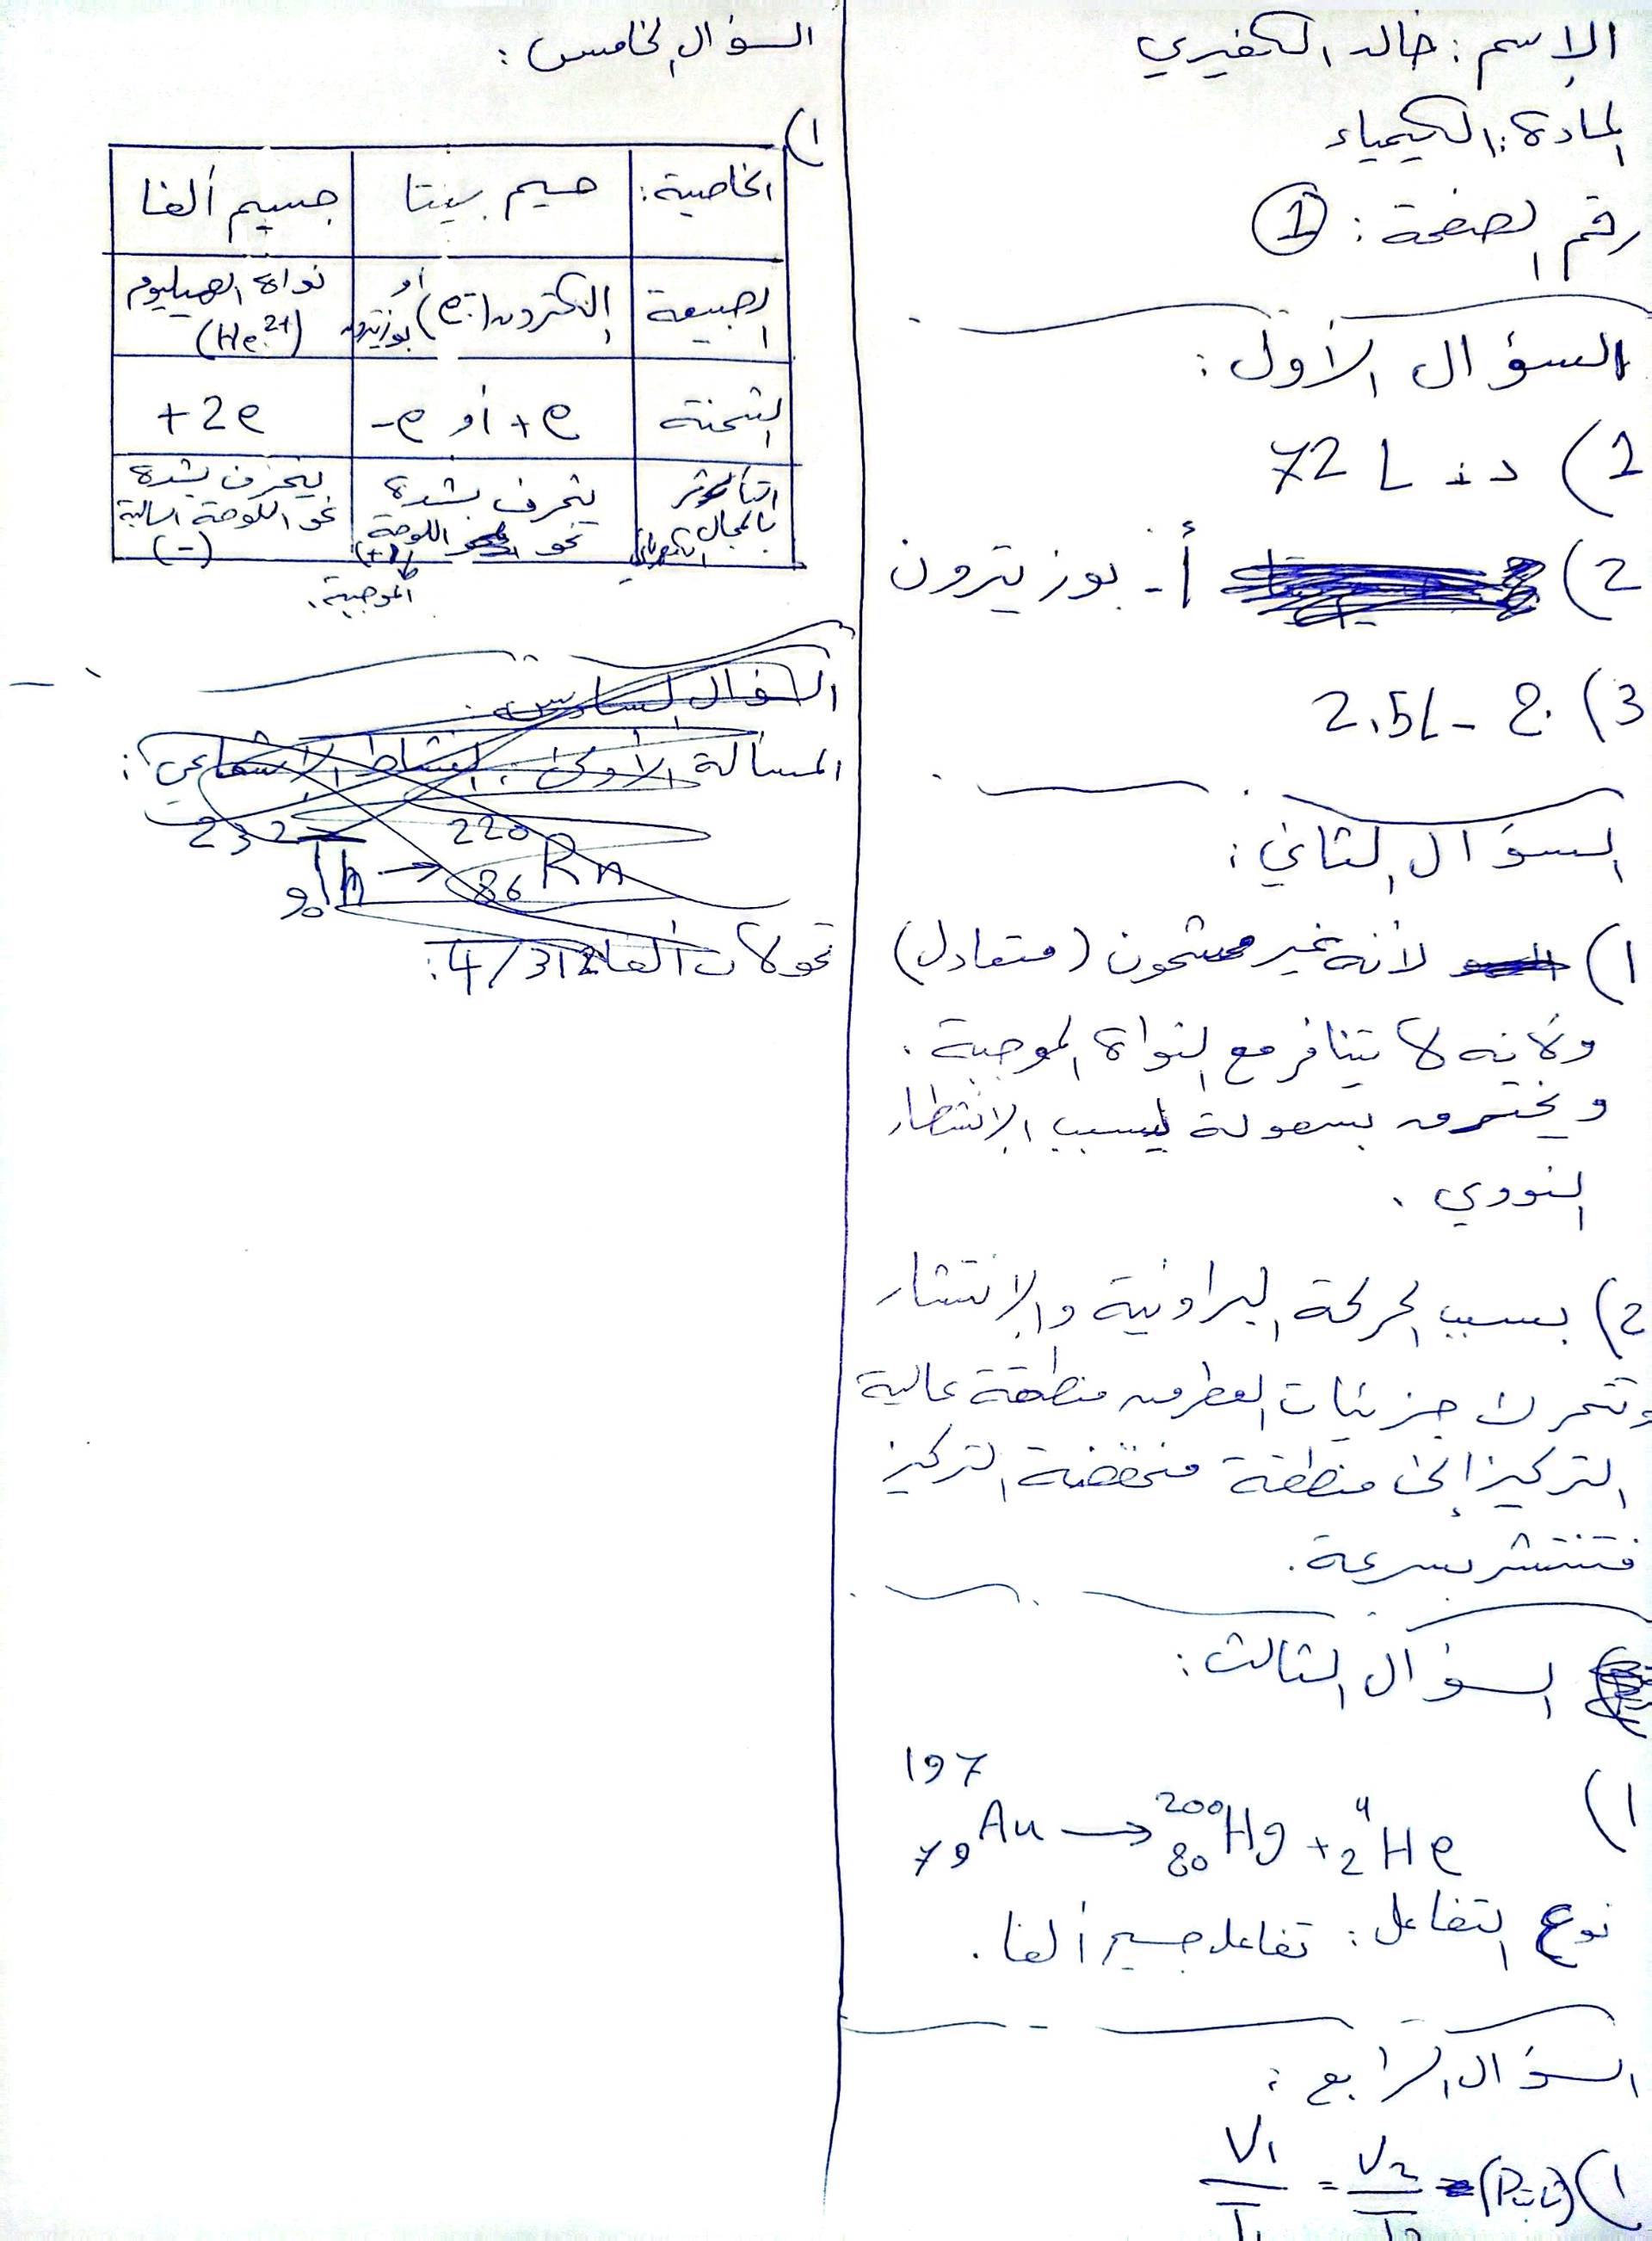 الإسم : خالد الكفيري
المادة : الكيمياء
رقم الصفحة : 1
السؤال الأول :
1) د - 72 L
2) أ - بوزيترون
3) ج - 2.5L
السؤال الثاني :
1) لأنه غير مشحون (متعادل)
ولأنه لا يتنافر مع النواة الموجبة .
ويخترق بسهولة ليسبب الإنشطار
النووي .
2) بسبب الحركة البراونية والإنتشار
وتتحرك جزيئات العطر من منطقة عالية
التركيز إلى منطقة منخفضة التركيز
فتنتشر بسرعة .
السؤال الثالث :
1)
197 79 Au → 200 80 Hg + 4 2 He
نوع التفاعل : تفاعل جسيم ألفا .
السؤال الرابع :
1) V1 = V2
السؤال الخامس :
1)
الخاصية : جسيم بيتا جسيم ألفا
الطبيعة إلكترون (e-) أو بوزيترون نواة الهيليوم (He2+)
الشحنة +e أو -e +2e
التأثر بالمجال الكهربائي ينحرف بشدة نحو اللوحة (+) الموجبة . ينحرف بشدة نحو اللوحة السالبة (-)
السؤال السادس :
المسألة الأولى : النشاط الإشعاعي :
232 90 Th → 220 86 Rn
تحولات ألفا